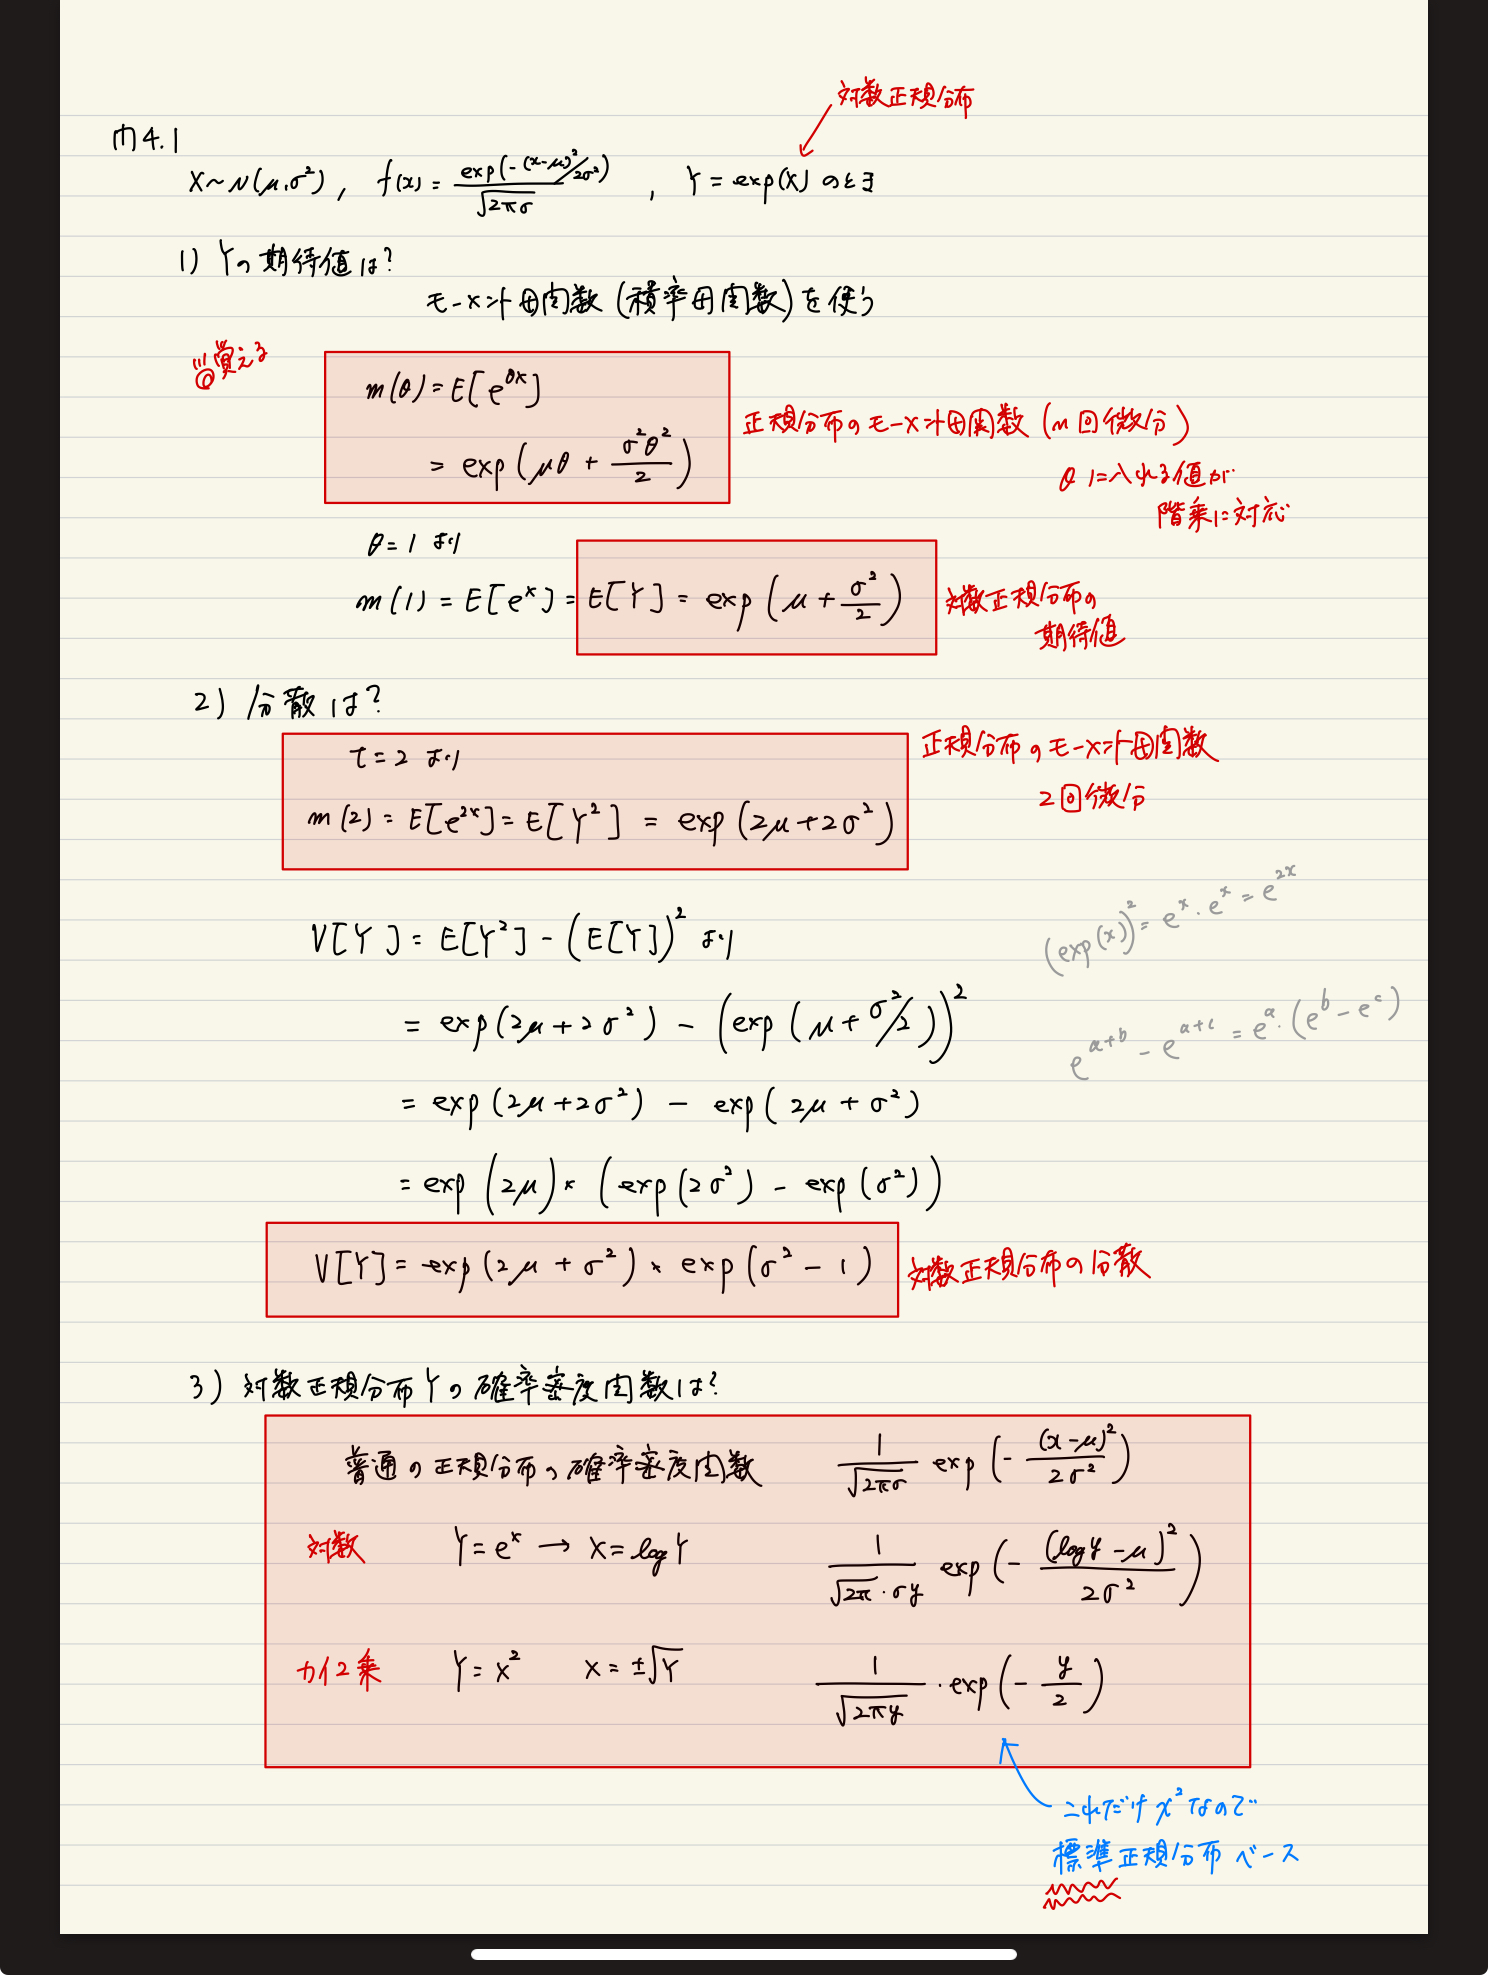 対数正規分布
内4.1
X~N(μ,σ²), f(x)=exp(-(x-μ)²/2σ²)/√2πσ , Y=exp(X) のとき
1) Yの期待値は?
モーメント母関数(積率母関数)を使う
覚える
m(θ)=E[e^θx]
=exp(μθ+σ²θ²/2)
正規分布のモーメント母関数(n回微分)
θに入れる値が
階乗に対応
θ=1 より
m(1)=E[e^x]=E[Y]=exp(μ+σ²/2)
対数正規分布の
期待値
2) 分散は?
t=2 より
m(2)=E[e^2x]=E[Y²]=exp(2μ+2σ²)
正規分布のモーメント母関数
2回微分
V[Y]=E[Y²]-(E[Y])² より
(exp(x))²=e^x・e^x=e^2x
=exp(2μ+2σ²)-(exp(μ+σ²/2))²
e^a+b - e^a+c = e^a・(e^b-e^c)
=exp(2μ+2σ²)-exp(2μ+σ²)
=exp(2μ)×(exp(2σ²)-exp(σ²))
V[Y]=exp(2μ+σ²)×exp(σ²-1)
対数正規分布の分散
3) 対数正規分布Yの確率密度関数は?
普通の正規分布の確率密度関数 1/√2πσ exp(-(x-μ)²/2σ²)
対数 Y=e^x → X=logY 1/√2π・σy exp(-(logy-μ)²/2σ²)
カイ2乗 Y=x² X=±√Y 1/√2πy・exp(-y/2)
これだけχ²なので
標準正規分布ベース